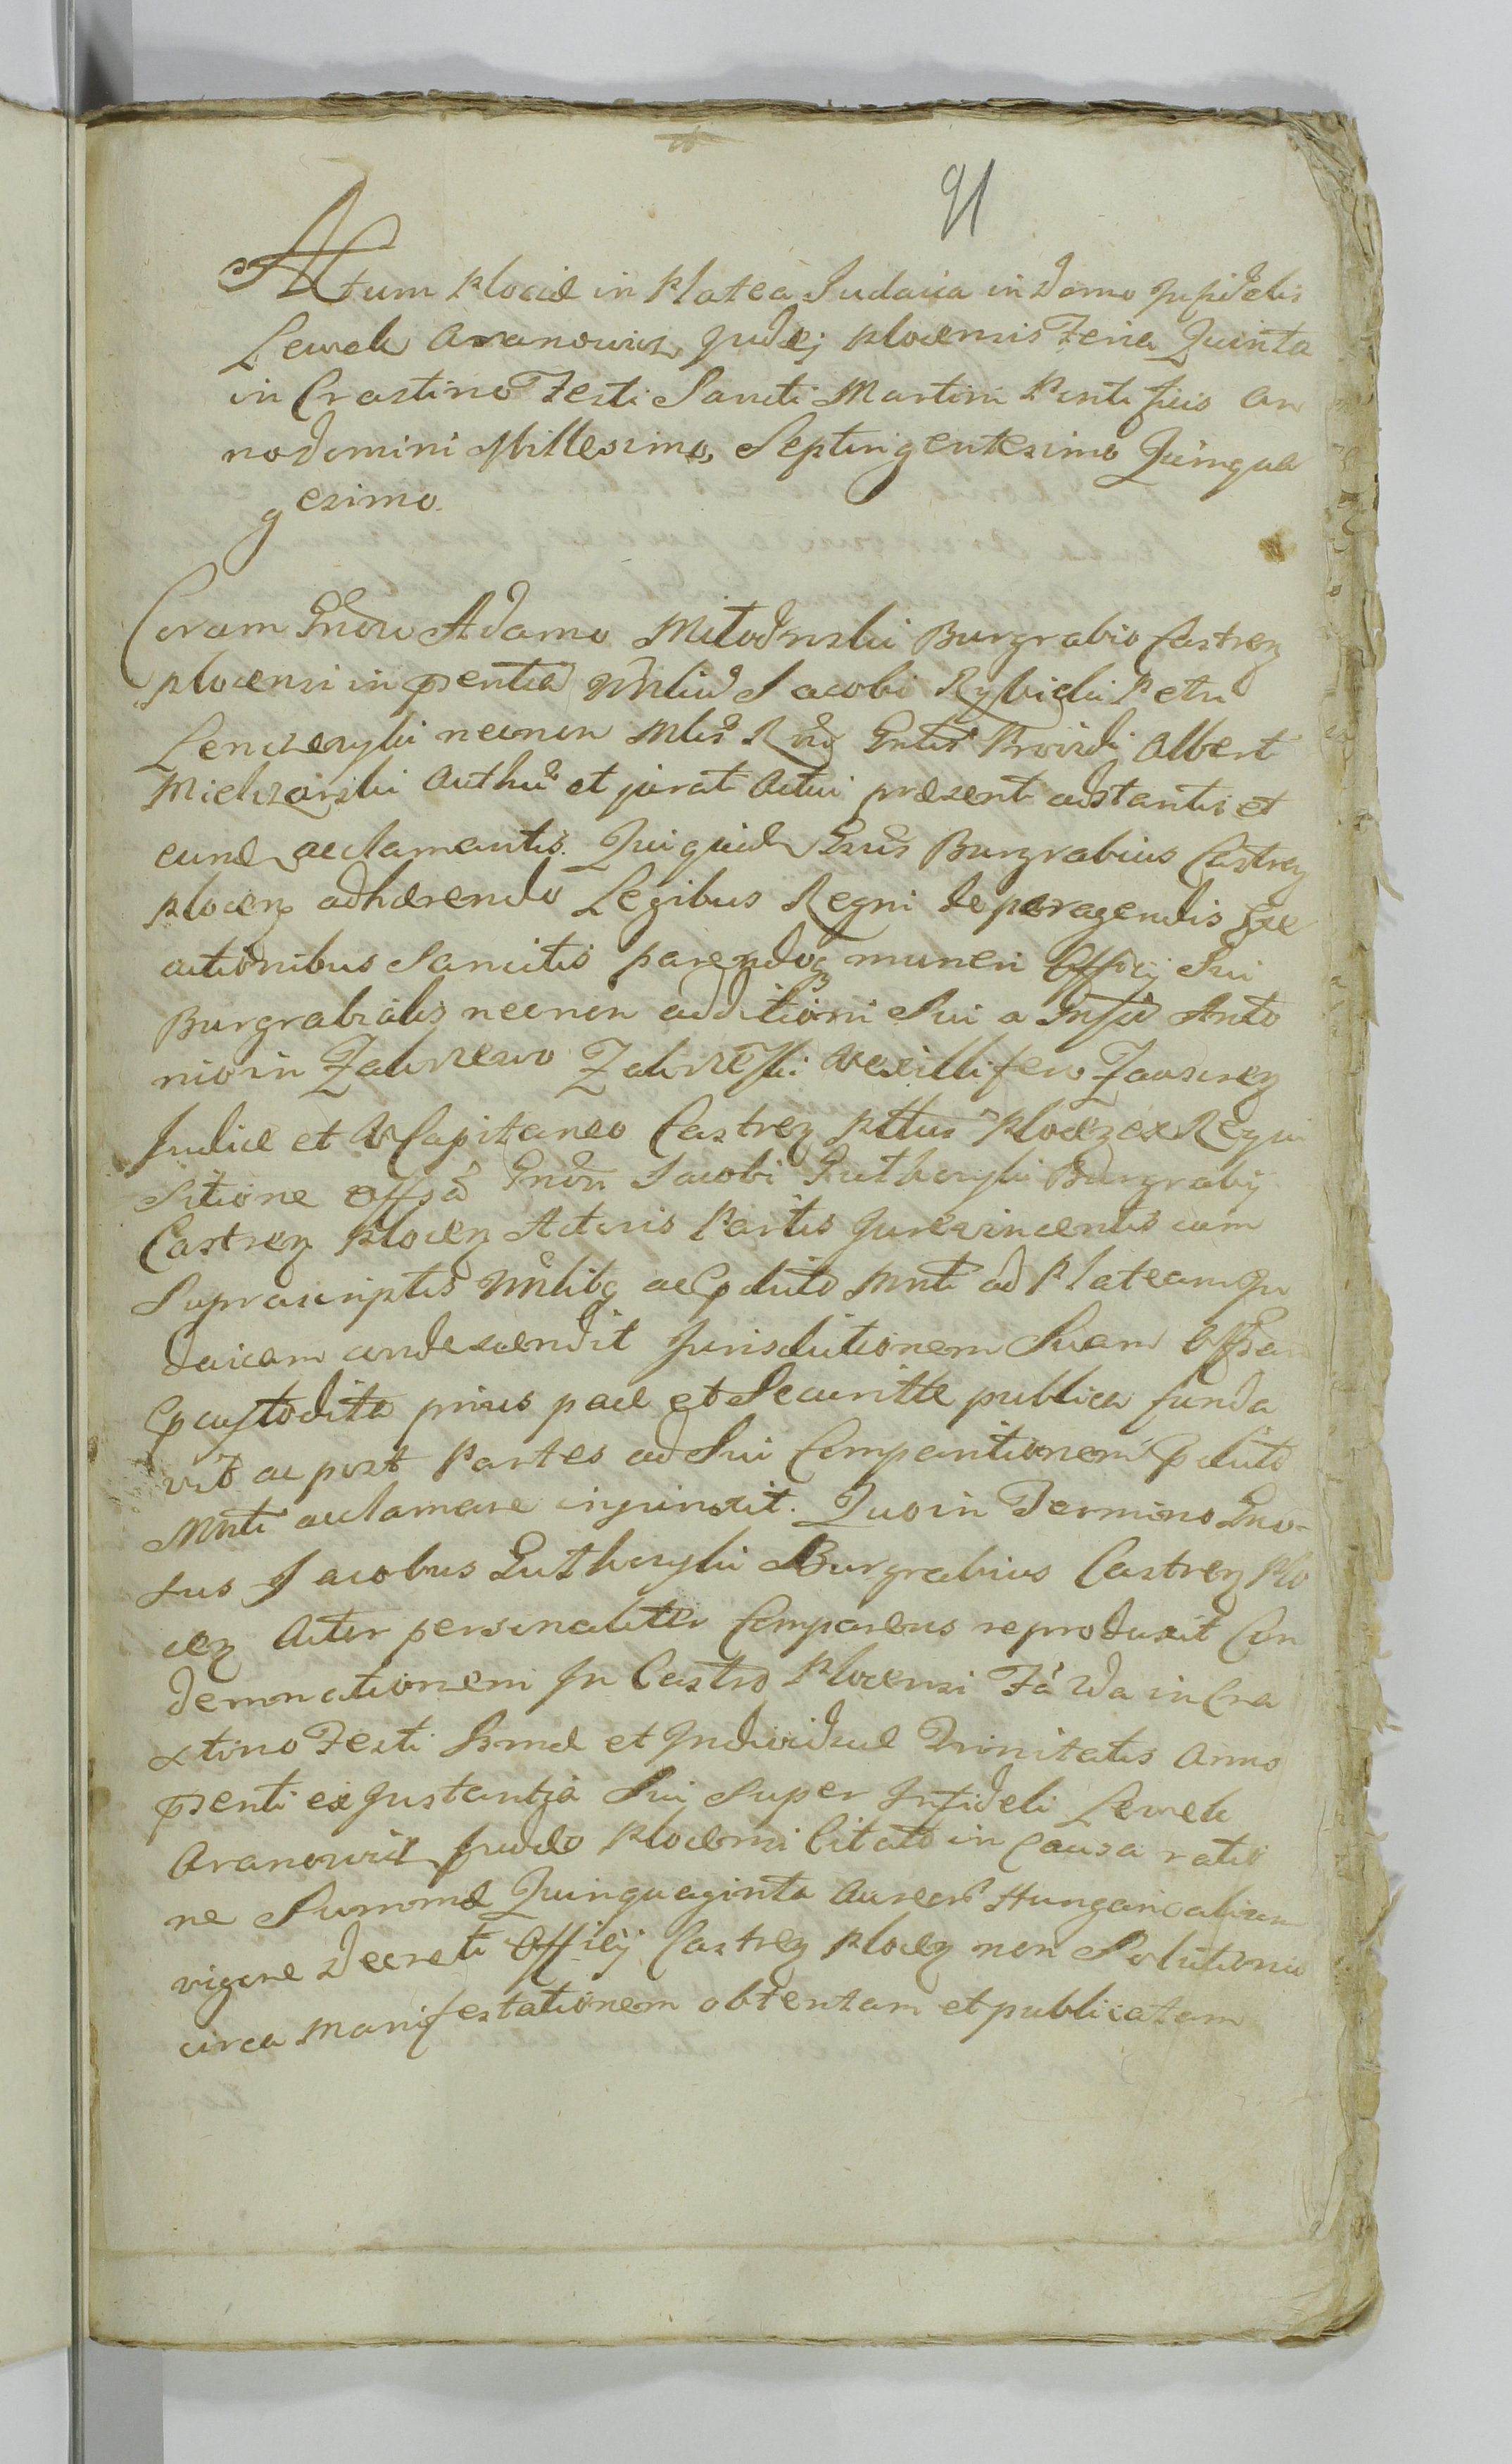 91
Actum Plociæ in Platea Judaica in Domo Infidelis
Lewek Aranowicz Judæj Plocensis Feria Quinta
in Crastino Festi Sancti Martini Pontificis An
no Domini Millesimo Septingentesimo Quinqua
gesimo.
Coram Gndso Adamo Miłodrski Burgrabio Castren
Plocensi in psentia Nbliu Jacobi Rybicki Petri
Lenczeyski necnon Mlis Rni Gnlis Providi Albert
Michrzański Authen et jurat Actui præsenti adstantis et
eund acclamantis. Qui quid Gnsus Burgrabius Castren
Plocen adhærendo Legibus Regni de peragendis Exe
cutionibus Sancitis parendoq muneri Officij Sui
Burgrabialis necnon additioni Sui a Gnso Anto
nio in Zakrzewo Zakrzeski Vexillifero Zawscren
Judice et VCapitaneo Castren Pttus Plocen ex Requi
sitione Offsa Gndsi Jacobi Gutkowski Burgrabij
Castren Plocen Actoris Partis Jurevincentis cum
Suprascriptis Nblibq ac pcluto Mnti ad Plateam Ju
daicam condescendit Jurisdictionem Suam Offsam
pcustodita prius pace et Securitte publica funda
vit ac post Partes ad Sui Comparitionem p cluto
Mnti acclamare injunxit. Quo in Termino Gno-
sus Jacobus Gutkowski Burgrabius Castren Plo
cen Actor personaliter Comparens reproduxit Con
demnationem In Castro Plocensi Fa 2da in Cra
stino Festi Ssmæ et Individuæ Trinitatis Anno
psenti ex Instantia Sui Super Infideli Lewek
Aranowicz Judæo Plocensi Citato in Causa ratio
ne Summæ Quinquaginta Aureor Hungaricalium
vigore Decreti Officij Castren Plocen non Solutionis
circa Manifestationem obtentam et publicatam